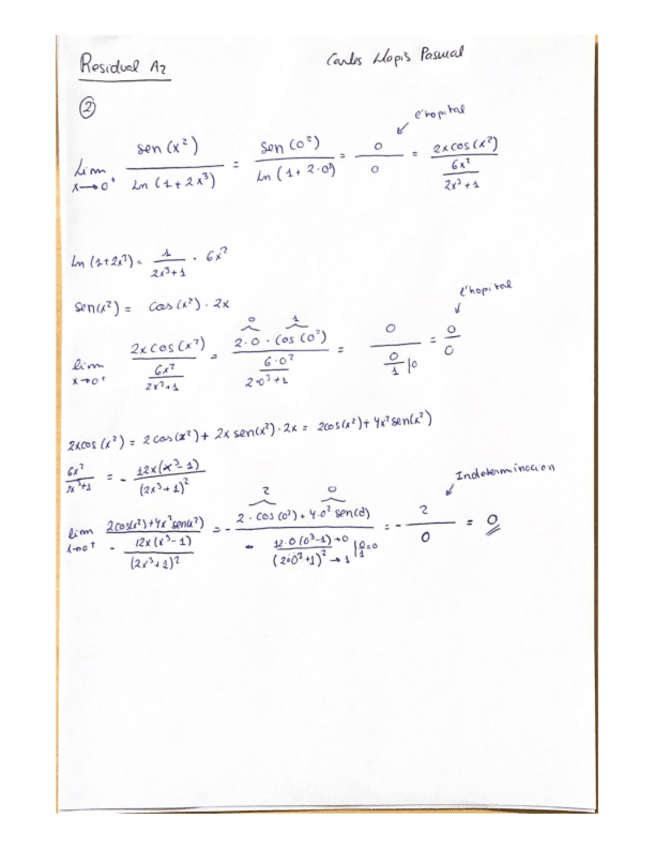 Residual A2 Carlos Llopis Pascual
②
l'hopital
lim x→0⁺ sen(x²) / Ln(1+2x³) = sen(0²) / Ln(1+2·0³) = 0/0 = 2xcos(x²) / (6x² / 2x³+1)
Ln(1+2x³) = 1/(2x³+1) · 6x²
sen(x²) = cos(x²) · 2x
l'hopital
0 1
lim x→0⁺ 2xcos(x²) / (6x² / 2x³+1) = 2·0·cos(0²) / (6·0² / 2·0³+1) = 0 / (0/1) |0 = 0/0
2xcos(x²) = 2cos(x²) + 2x sen(x²)·2x = 2cos(x²) + 4x²sen(x²)
6x² / 2x³+1 = - 12x(x³-1) / (2x³+1)²
Indeterminacion
2 0
lim x→0⁺ 2cos(x²)+4x²sen(x²) / - (12x(x³-1) / (2x³+1)²) = - 2·cos(0²)+4·0²sen(0) / - (12·0(0³-1)→0 / (2·0³+1)²→1) |0/1=0 = - 2/0 = 0